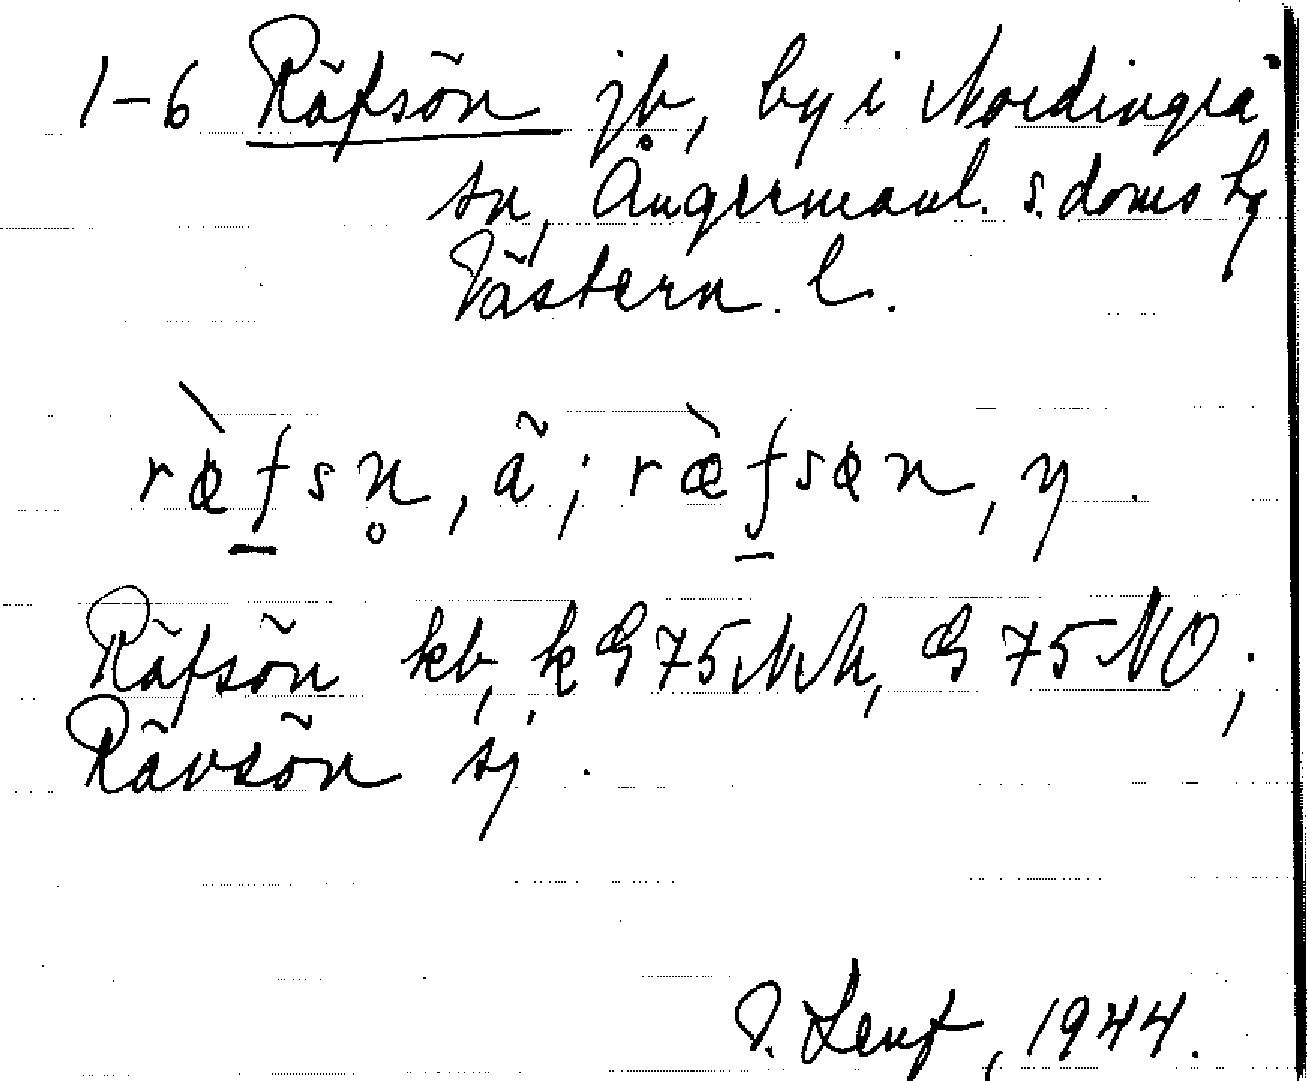 1-6 Räfsön jb, by i Nordingrå
sn, Ångermanl. s. doms hg
Västern. l.
ræ̀fsn̥, ã; ræ̀fsæn, y.
Räfsön kb, k G 75 NV, G 75 NO;
Rävsön sj.
I. Leuf, 1944.